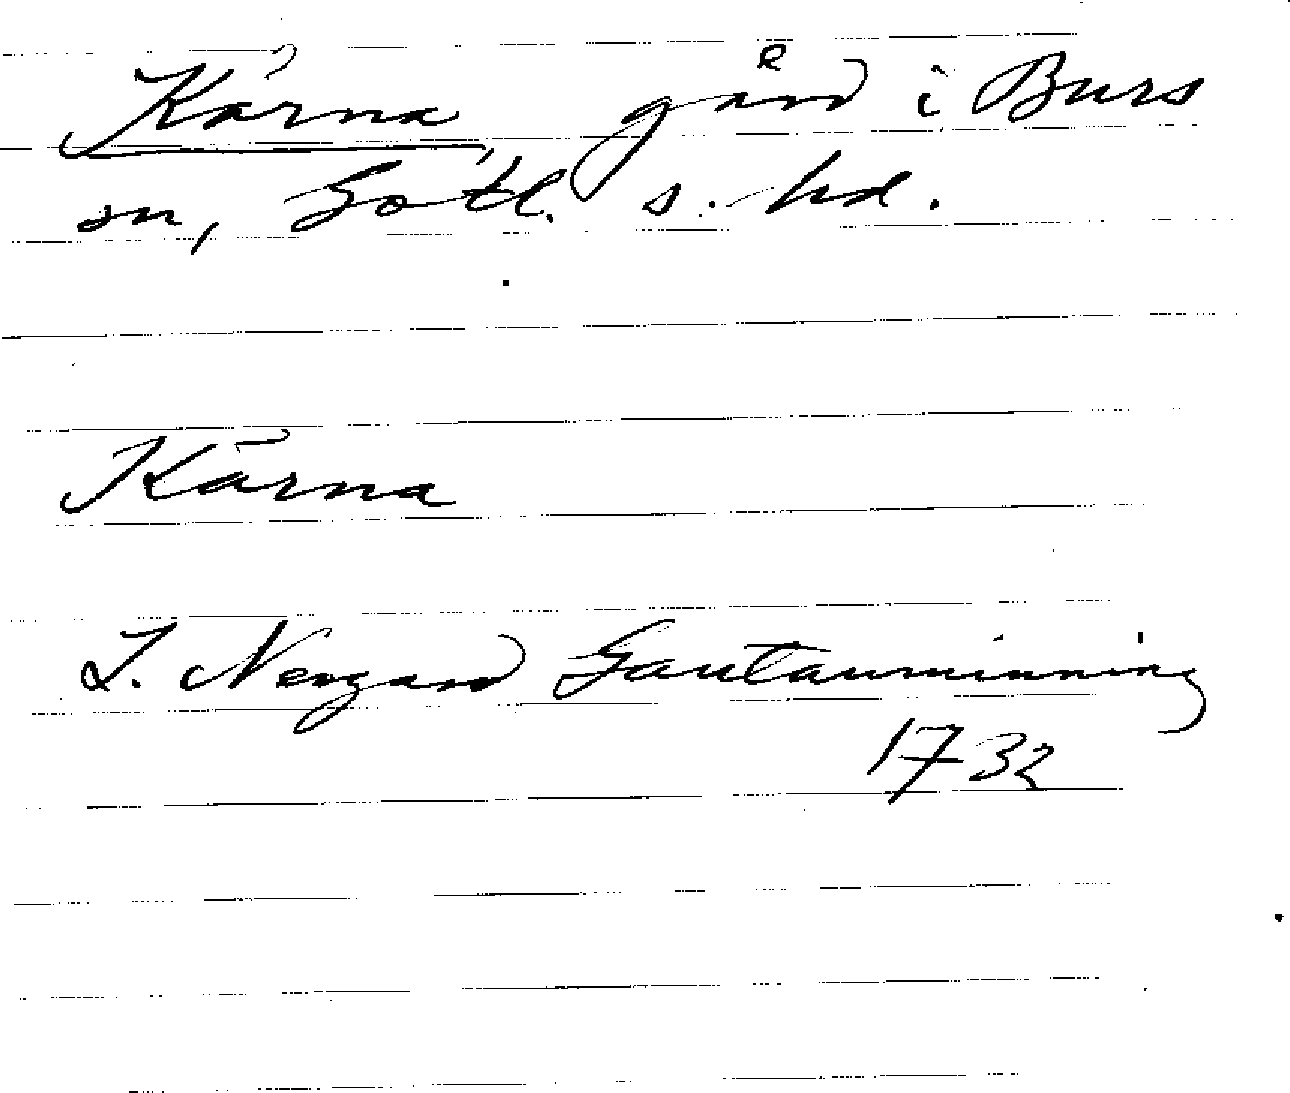 Kärna gård i Burs
sn, Gotl. s. hd.
Kärna
L. Nergard Gautauminning
1732